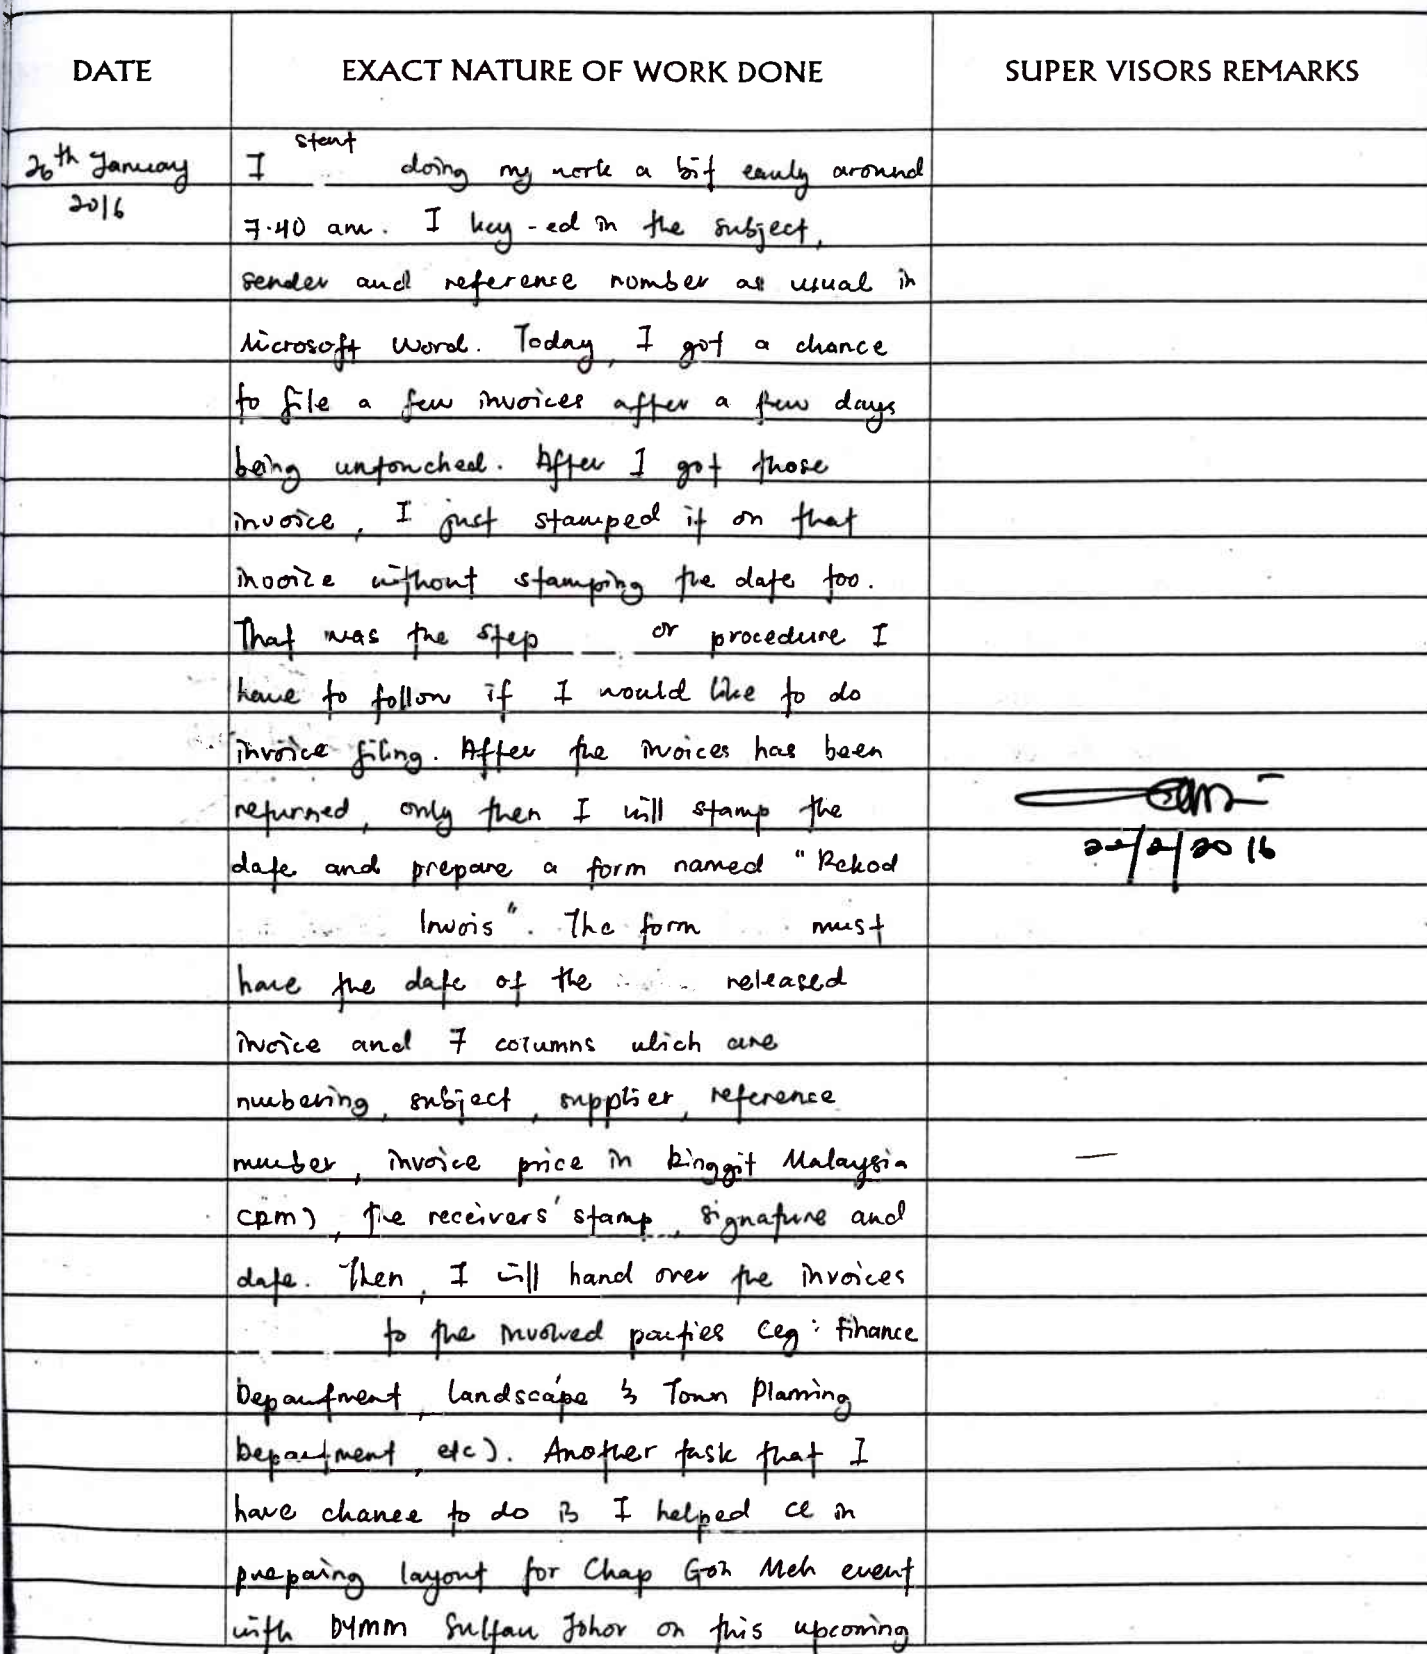 DATE EXACT NATURE OF WORK DONE SUPER VISORS REMARKS
start
26th January I doing my work a bit early around
2016 7.40 am. I key-ed in the subject,
sender and reference number as usual in
Microsoft Word. Today, I got a chance
to file a few invoices after a few days
being untouched. After I got those
invoice, I just stamped it on that
invoice without stamping the date too.
That was the step or procedure I
have to follow if I would like to do
invoice filing. After the invoices has been
returned, only then I will stamp the
date and prepare a form named "Rekod
22/2/2016
Invois". The form must
have the date of the released
invoice and 7 columns which are
numbering, subject, supplier, reference
number, invoice price in Ringgit Malaysia
(RM), the receivers' stamp, signature and
date. Then, I will hand over the invoices
to the involved parties (eg: Finance
Department, Landscape & Town Planning
Department, etc). Another task that I
have chance to do is I helped CC in
preparing layout for Chap Goh Meh event
with DYMM Sultan Johor on this upcoming